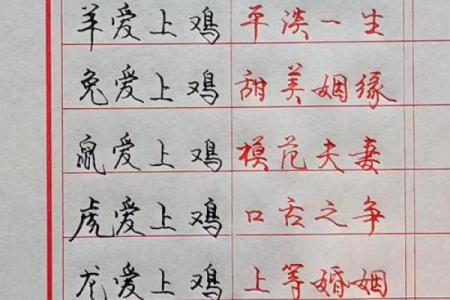 羊爱上鸡 平淡一生
兔爱上鸡 甜美姻缘
鼠爱上鸡 模范夫妻
虎爱上鸡 口舌之争
龙爱上鸡 上等婚姻